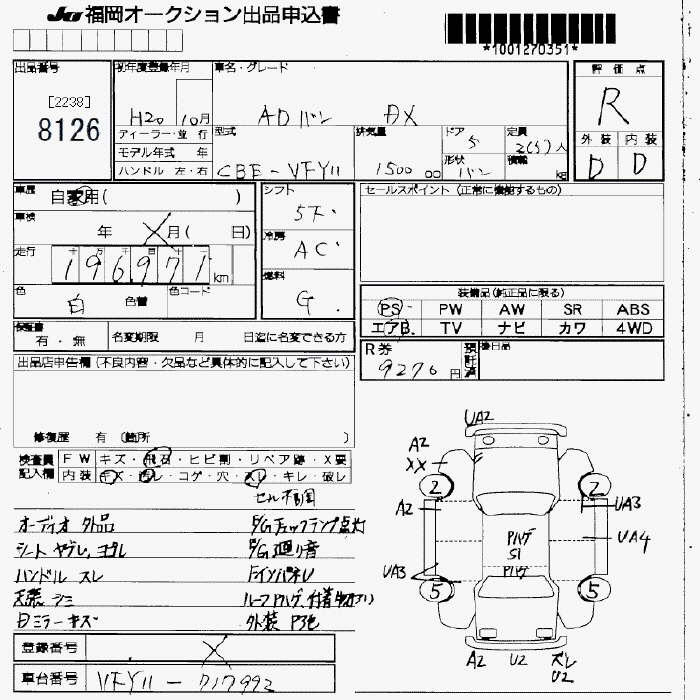 JU 福岡オークション出品申込書
*1001270351*
出品番号
[2238]
8126
初年度登録年月
H20 10月
車名・グレード
ADバン DX
評価点
R
外装 内装
D D
ディーラー・並行
モデル年式 年
ハンドル 左・右
型式
CBE-VFY11
排気量
1500 cc
ドア
5
形状
バン
定員
2(5)人
積載
kg
車歴
自家用( )
車検
年 X月( 日)
走行
196971 km
色
白 色替
色コード
シフト
5下
冷房
AC
燃料
G
セールスポイント (正常に機能するもの)
装備品(純正品に限る)
PS PW AW SR ABS
エアB. TV ナビ カワ 4WD
有・無
名変期限 月 日迄に名変できる方
R券
9270円
預託済
後日品
出品店申告欄(不良内容・欠品など具体的に記入して下さい)
修復歴 有 (箇所 )
検査員記入欄
FW キズ・飛石・ヒビ割・リペア跡・X要
内装 キズ・汚レ・コゲ・穴・スレ・キレ・破レ
セル不調
オーディオ 外品
E/Gチェックランプ点灯
シート ヤブレ、ヨゴレ
E/G廻り音
ハンドル スレ
Fインパネ
天張 シミ
ルーフPハゲ、付着物有り
Dミラーキズ
外装 P3色
登録番号
X
車台番号
VFY11-717992
UA2
A2
XX
2
2
A2
UA3
Pハゲ
S1
Pハゲ
UA4
UA3
5
5
A2 U2 ズレ
U2